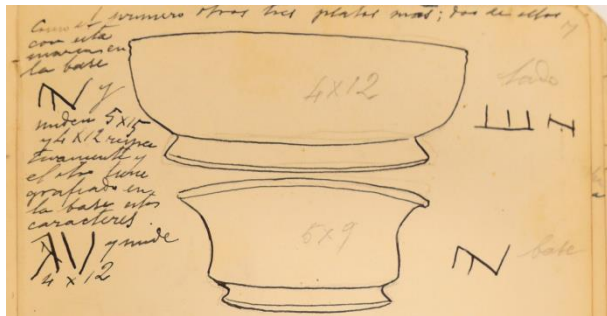 Como el primero otros tres platos mas; dos de ellos
con esta
marca en
la base
y
miden 5x15
y 4x12 respec
tivamente y
el otro tiene
grafiado en
la base estos
caracteres
y mide
4 x 12
4x12
lado
5x9
base